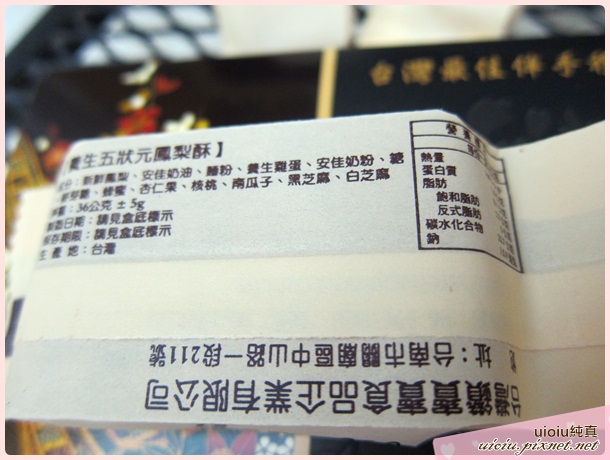 台灣最佳伴手
養生五狀元鳳梨酥】
成分：新鮮鳳梨、安佳奶油、麵粉、養生雞蛋、安佳奶粉、糖
、蜂蜜、杏仁果、核桃、南瓜子、黑芝麻、白芝麻
淨量：36公克 ± 5g
製造日期：請見盒底標示
保存期限：請見盒底標示
生產地：台灣
營養
熱量
蛋白質
脂肪
飽和脂肪
反式脂肪
碳水化合物
鈉
台灣鑽寶寶食品企業有限公司
址：台南市關廟區中山路一段211號
uioiu純真
uioiu.pixnet.net